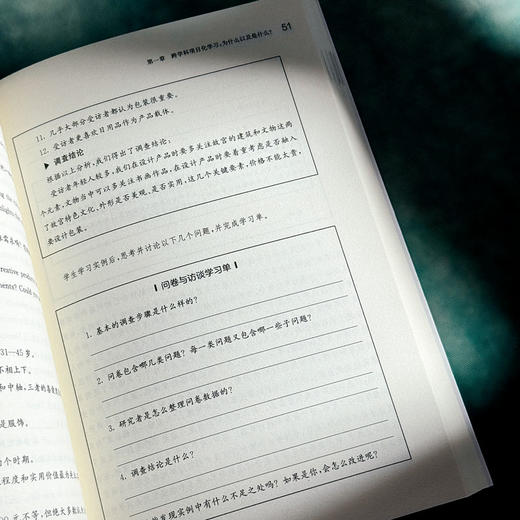 lights the
reative produ
ments? Could yo
31—45 岁。
不相上下。
和中轴，三者的喜爱
是服饰。
个时期。
程度和实用价值最为
00 元不等，但绝大多数
第一章 跨学科项目化学习：为什么以及是什么？ 51
11. 几乎大部分受访者都认为包装很重要。
12. 受访者更喜欢日用品作为产品载体。
▶ 调查结论
根据以上分析，我们得出了调查结论：
受访者年轻人较多，我们在设计产品时要多关注故宫的建筑和文物这两
个元素，文物当中可以多关注书画作品，在设计产品时要着重考虑是否融入
了故宫特色文化、外形是否美观、是否实用，这几个关键要素，价格不能太贵，
要设计包装。
学生学习实例后，思考并讨论以下几个问题，并完成学习单。
问卷与访谈学习单
1. 基本的调查步骤是什么样的？
2. 问卷包含哪几类问题？每一类问题又包含哪一些子问题？
3. 研究者是怎么整理问卷数据的？
4. 调查结论是什么？
发现实例中有什么不足之处吗？如果是你，会怎么改进呢？